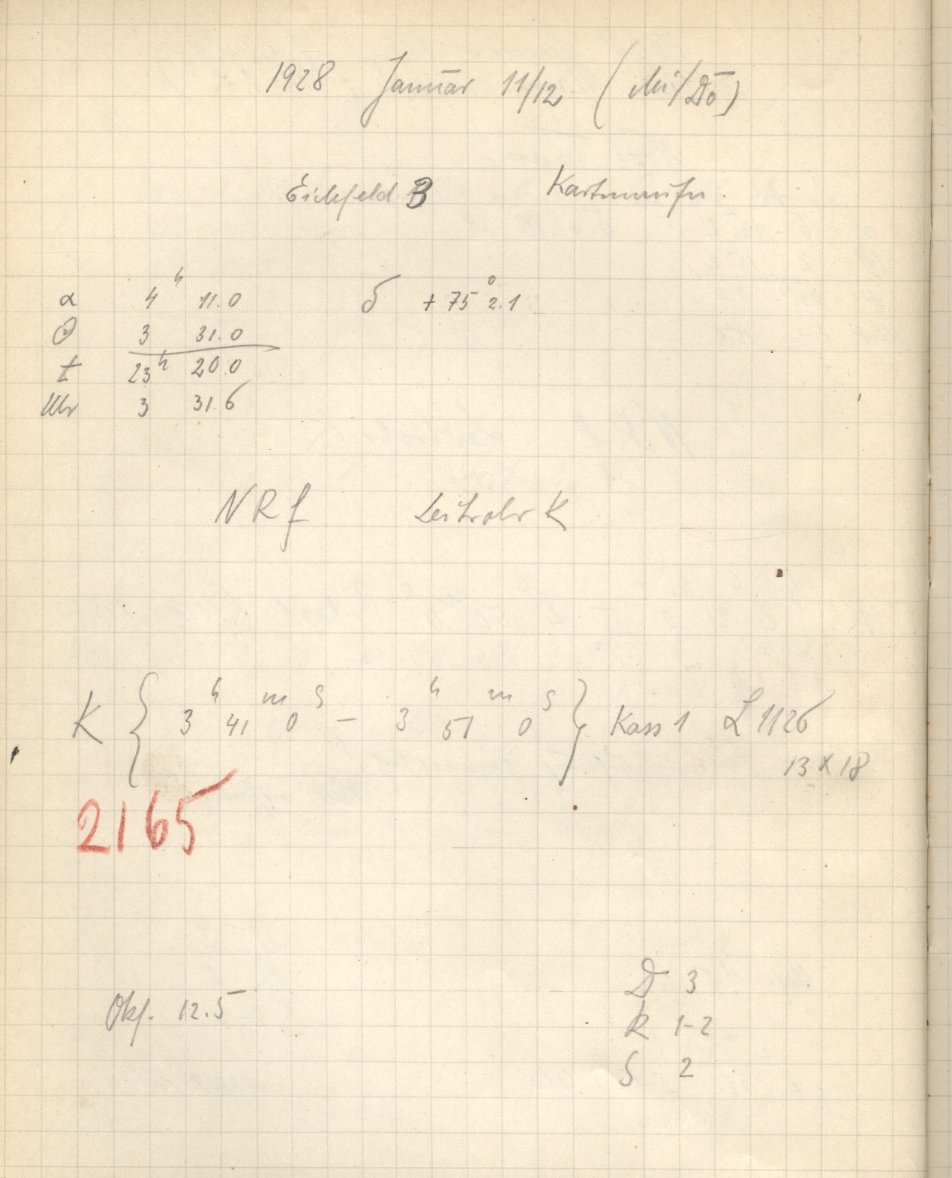 1928 Januar 11/12 (Mi/Do)
Eichfeld B Kartenaufn.
α 4ʰ 11.0 δ +75° 2.1
Θ 3 31.0
t 23ʰ 20 0
Uhr 3 31 6
NRf Leitrohr K
K { 3ʰ 41ᵐ 0ˢ – 3ʰ 51ᵐ 0ˢ } Kass 1 L 1126
13 x 18
2165
D 3
Okf. 12.5
R 1-2
S 2